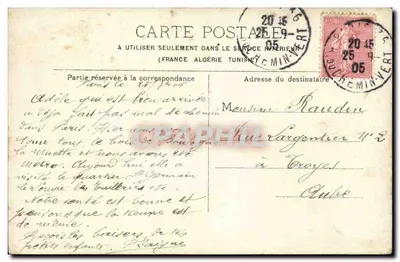 CARTE POSTALE
À UTILISER SEULEMENT DANS LE SERVICE INTÉRIEUR
(FRANCE ALGÉRIE TUNISIE)
20 45
25 - 9
05
R. DU CHEMIN-VERT
20 45
25 9
05
R. DU CHEMIN-VERT
Partie réservée à la correspondance
Adresse du destinataire
Paris le 25/9 05
Adèle qui est bien arrivée
a déjà fait pas mal de chemin
dans Paris. Hier
tout le bois de Boulogne
la muette et nous avons
metro. Aujourd'hui elle a
visité le quartier St Germain
le Louvre les Tuileries etc.
Notre santé est bonne et
pensons que la
de même.
baisers de tes
petits enfants.
Monsieur Raudin
Rue Largentier N° 2
à Troyes
Aube
PRCARTES